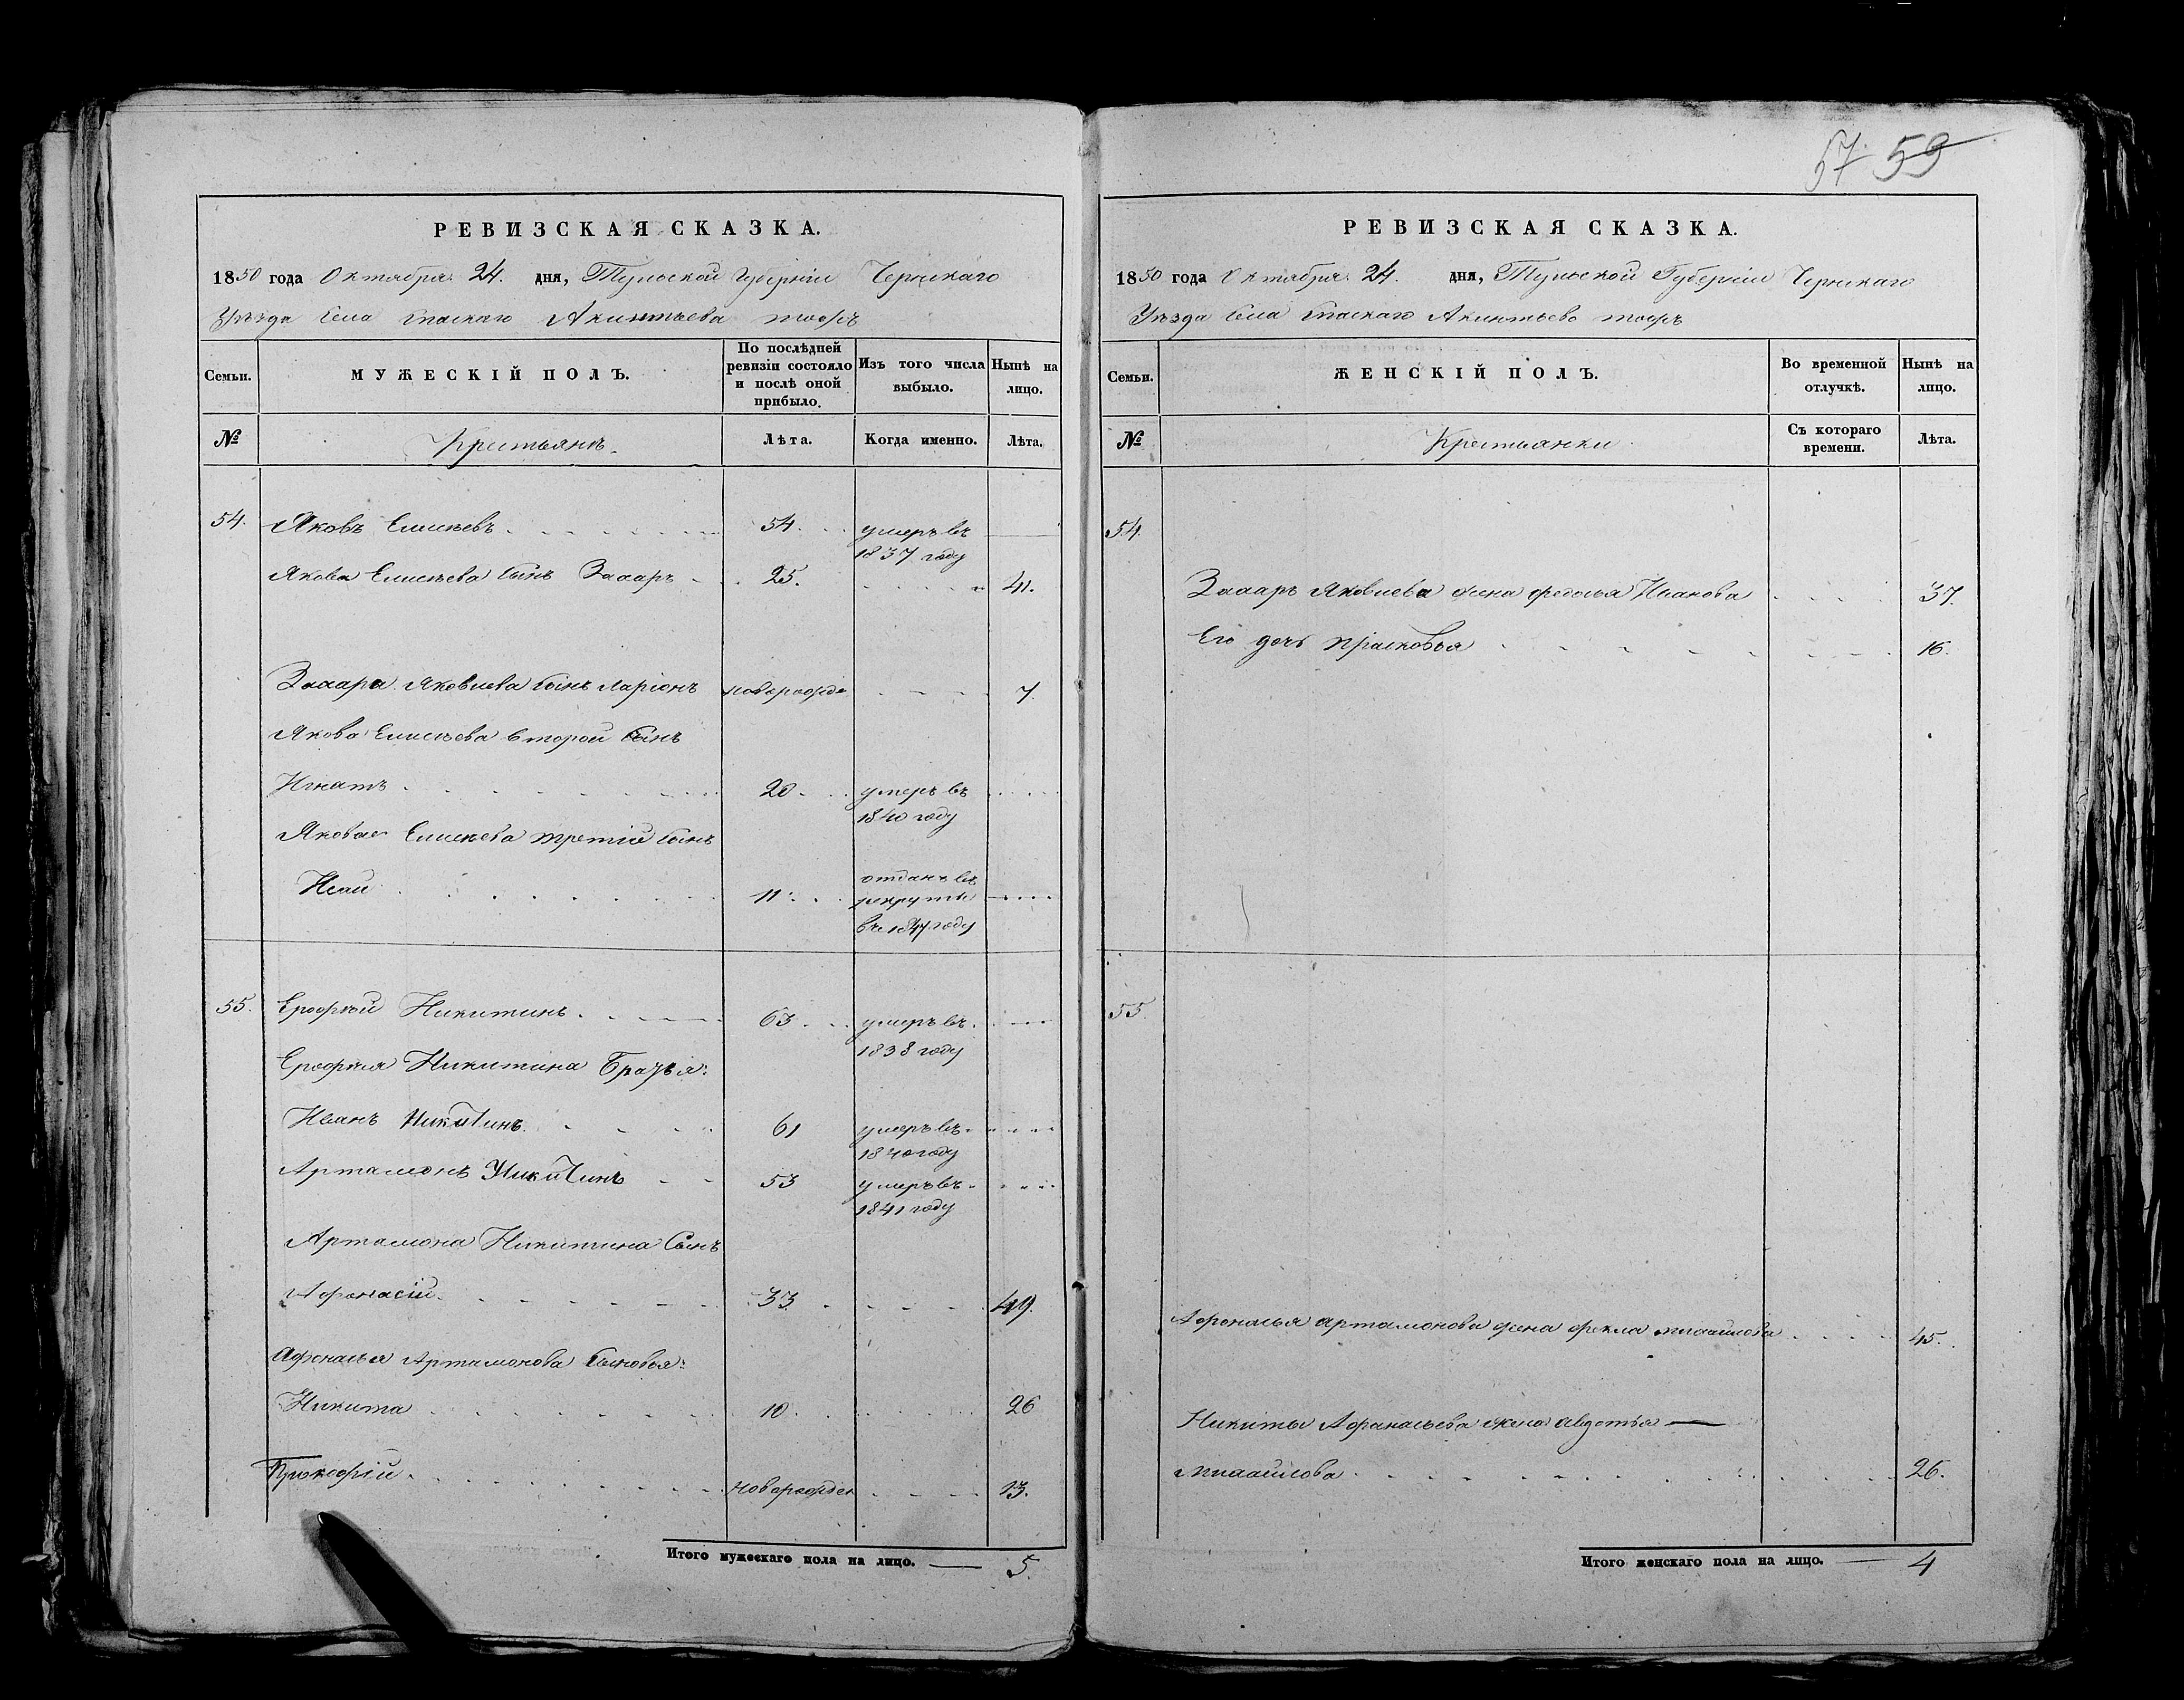 57. 59
РЕВИЗСКАЯ СКАЗКА.
1850 года Октября 24. дня, Тульской Губерніи Чернскаго
Уѣзда Села Спаскаго Акинтьева тожъ
Семьи. МУЖЕСКІЙ ПОЛЪ. По послѣдней ревизіи состояло и послѣ оной прибыло. Изъ того числа выбыло. Нынѣ на лицо.
№ Крестьянъ. Лѣта. Когда именно. Лѣта.
54. Яковъ Елисѣевъ 54. умеръ въ
1837 году
Якова Елисѣева Сынъ Захаръ 25. 41.
Захара Яковлева Сынъ Ларіонъ новорожде 7.
Якова Елисѣева второй Сынъ
Игнатъ 20 умеръ въ
1840 году
Якова Елисѣева третій Сынъ
Исай 11. отданъ въ
рекруты
въ 1847 году
55. Ерофѣй Никитинъ. 63 умеръ въ
1838 году
Ерофѣя Никитина Братья:
Иванъ Никитинъ. 61 умеръ въ
1840 году
Артамонъ Никитинъ 53 умеръ въ
1841 году
Артамона Никитина Сынъ
Афонасій. 33 49.
Афонасья Артамонова Сыновья:
Никита 10. 26
Прокофій. новорожден 13.
Итого мужескаго пола на лицо. 5.
РЕВИЗСКАЯ СКАЗКА.
1850 года Октября 24. дня, Тульской Губерніи Чернскаго
Уѣзда Села Спаскаго Акинтьево тожъ
Семьи. ЖЕНСКІЙ ПОЛЪ. Во временной отлучкѣ. Нынѣ на лицо.
№ Крестьянки Съ котораго времени. Лѣта.
54.
Захаръ Яковлева жена Федосья Иванова 37.
Его дочь Прасковья 16.
55.
Афонасья Артамонова жена Фекла Михайлова 45.
Никиты Афанасьева жена Авдотья
Михайлова 26.
Итого женскаго пола на лицо. 4